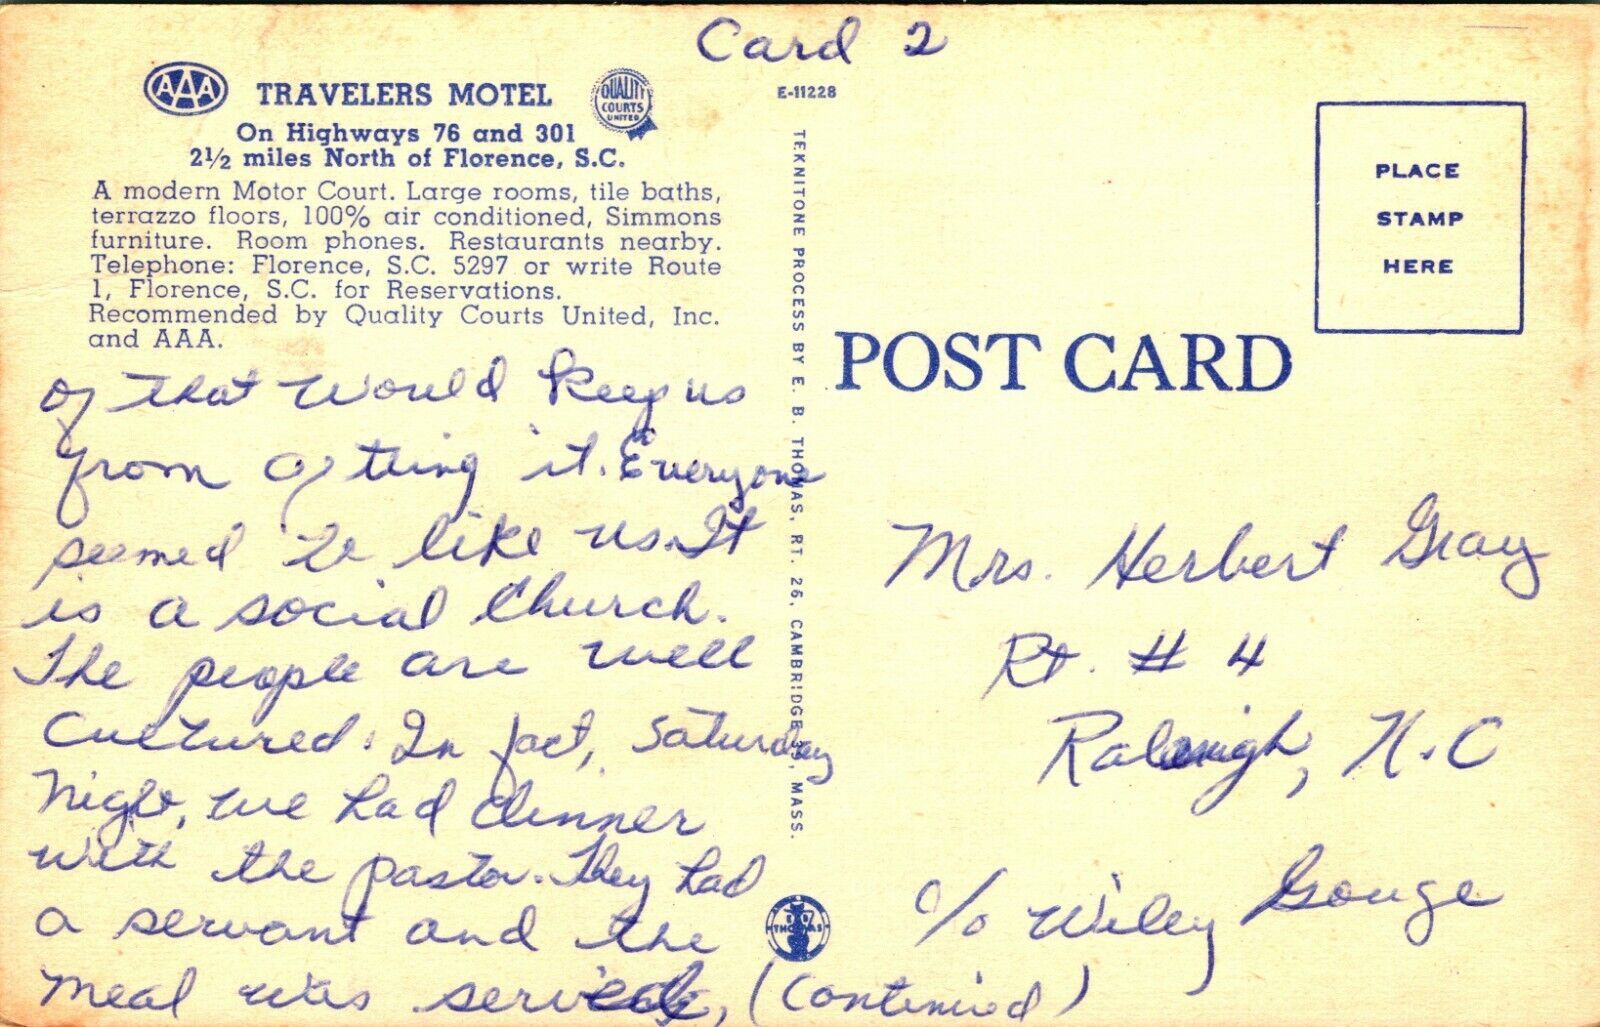 Card 2
AAA
TRAVELERS MOTEL
QUALITY
COURTS
UNITED
On Highways 76 and 301
2½ miles North of Florence, S.C.
A modern Motor Court. Large rooms, tile baths,
terrazzo floors, 100% air conditioned, Simmons
furniture. Room phones. Restaurants nearby.
Telephone: Florence, S.C. 5297 or write Route
1, Florence, S.C. for Reservations.
Recommended by Quality Courts United, Inc.
and AAA.
of that would keep us
from g tting it. Everyone
seemed to like us. It
is a social church.
The people are well
cultured. In fact, Saturday
Night, we had dinner
with the pastor. They had
a servant and the
meal was served, (Continued)
E-11228
TEKNITONE PROCESS BY E. B. THOMAS, RT. 26, CAMBRIDGE 39, MASS.
E B
THOMAS
PLACE
STAMP
HERE
POST CARD
Mrs. Herbert Gray
Rt. # 4
Raleigh, N.C
c/o Wiley Gouge